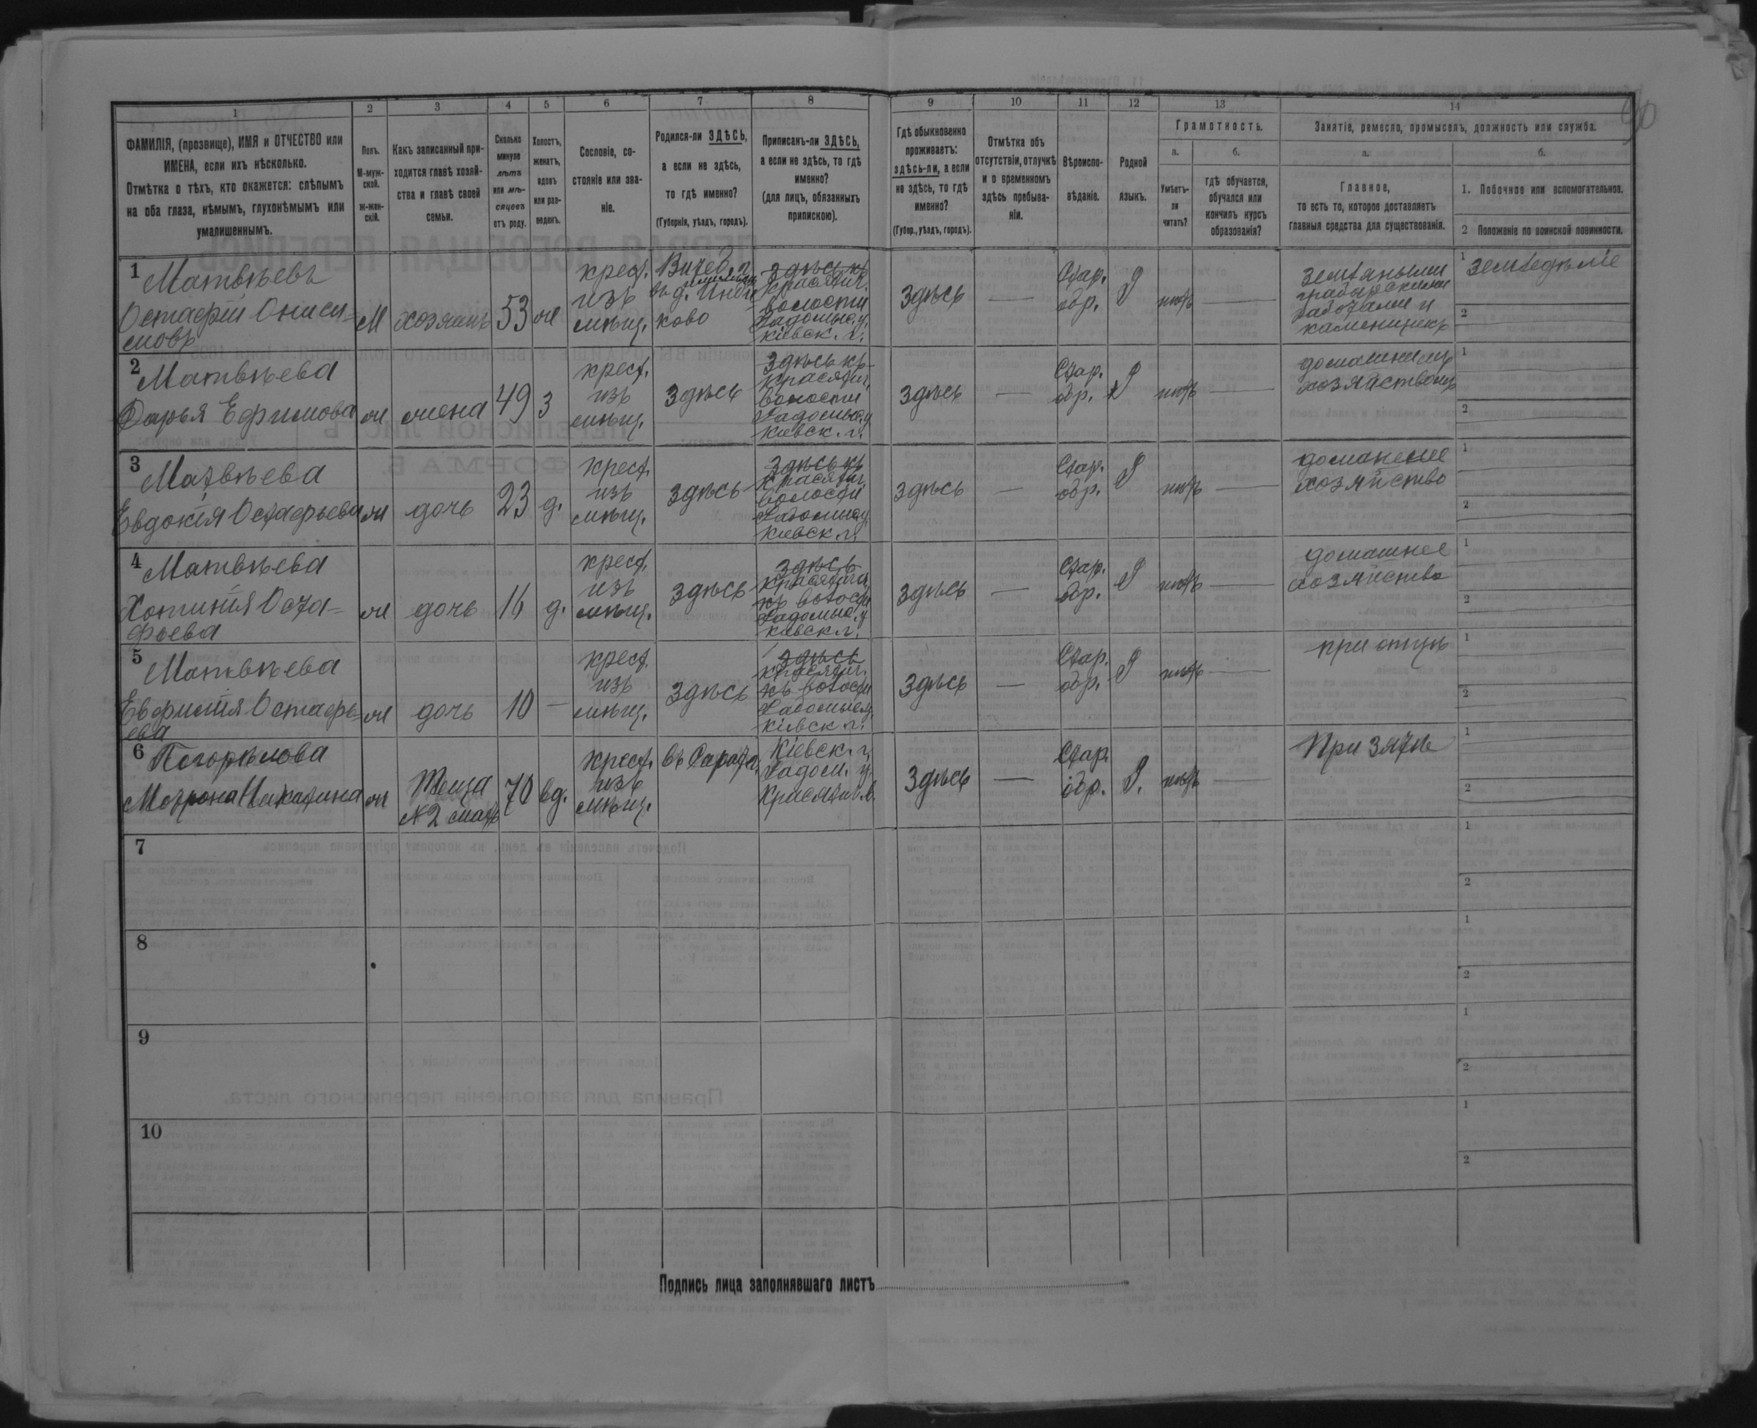 90
1 2 3 4 5 6 7 8 9 10 11 12 13 14
ФАМИЛІЯ, (прозвище), ИМЯ и ОТЧЕСТВО или
ИМЕНА, если ихъ нѣсколько.
Отмѣтка о тѣхъ, кто окажется: слѣпымъ
на оба глаза, нѣмымъ, глухонѣмымъ или
умалишеннымъ.
Полъ.
М-муж-
ской.
Ж-жен-
скій.
Какъ записанный при-
ходится главѣ хозяй-
ства и главѣ своей
семьи.
Сколько
минуло
лѣтъ
или мѣ-
сяцевъ
отъ роду.
Холостъ,
женатъ,
вдовъ
или раз-
веденъ.
Сословіе, со-
стояніе или зва-
ніе.
Родился-ли ЗДѢСЬ,
а если не здѣсь,
то гдѣ именно?
(Губернія, уѣздъ, городъ).
Приписанъ-ли ЗДѢСЬ,
а если не здѣсь, то гдѣ
именно?
(для лицъ, обязанныхъ
припискою).
Гдѣ обыкновенно
проживаетъ:
здѣсь-ли, а если
не здѣсь, то гдѣ
именно?
(Губер., уѣздъ, городъ).
Отмѣтка объ
отсутствіи, отлучкѣ
и о временномъ
здѣсь пребыва-
ніи.
Вѣроиспо-
вѣданіе.
Родной
языкъ.
Грамотность.
а.
Умѣетъ-
ли
читать?
б.
гдѣ обучается,
обучался или
кончилъ курсъ
образованія?
Занятіе, ремесло, промыселъ, должность или служба.
а.
Главное,
то есть то, которое доставляетъ
главныя средства для существованія.
б.
1. Побочное или вспомогательное.
2 Положеніе по воинской повинности.
1 Матвѣевъ
Остафій Ониси-
мовъ
М
хозяинъ
53
ж
крест.
изъ
мѣщ.
въ д.
ково
здѣсь къ
Красятич.
волости
Радомыс. у.
Кіевск. г.
здѣсь
—
Стар.
обр.
Р
нѣтъ
—
земляными
грабарскими
работами и
каменщикъ
1 земледѣліе
2
2 Матвѣева
Дарья Ефимова
ж
жена
49
з
крест.
изъ
мѣщ.
здѣсь
здѣсь къ
Красятич.
волости
Радомыс. у
Кіевск. г.
здѣсь
—
Стар.
обр.
Р
нѣтъ
—
домашнимъ
хозяйствомъ
1
2
3 Матвѣева
Евдокія Остафьева
ж
дочь
23
д.
крест.
изъ
мѣщ.
здѣсь
здѣсь къ
Красятич.
волости
Радомыс. у
Кіевск. г.
здѣсь
—
Стар.
обр.
Р
нѣтъ
—
домашнее
хозяйство
1
2
4 Матвѣева
Хотинія Оста-
фьева
ж
дочь
16
д.
крест.
изъ
мѣщ.
здѣсь
здѣсь
Красятич.
къ волости
Радомыс. у
Кіевск. г.
здѣсь
—
Стар.
обр.
Р
нѣтъ
—
домашнее
хозяйство
1
2
5 Матвѣева
Евфимія Остафь-
ева
ж
дочь
10
—
крест.
изъ
мѣщ.
здѣсь
здѣсь
Красятич.
къ волости
Радомыс. у.
Кіевск. г.
здѣсь
—
Стар.
обр.
Р
нѣтъ
—
при отцѣ
1
2
6 Погорѣлова
Матрона Никитина
ж
Теща
№2 мать
70
вд.
крест.
изъ
мѣщ.
Кіевск. г.
Радом. у.
Красятич. в.
здѣсь
—
Стар.
обр.
Р.
нѣтъ
—
При зятѣ
1
2
7
1
2
8
1
2
9
1
2
10
1
2
Подпись лица заполнявшаго листъ